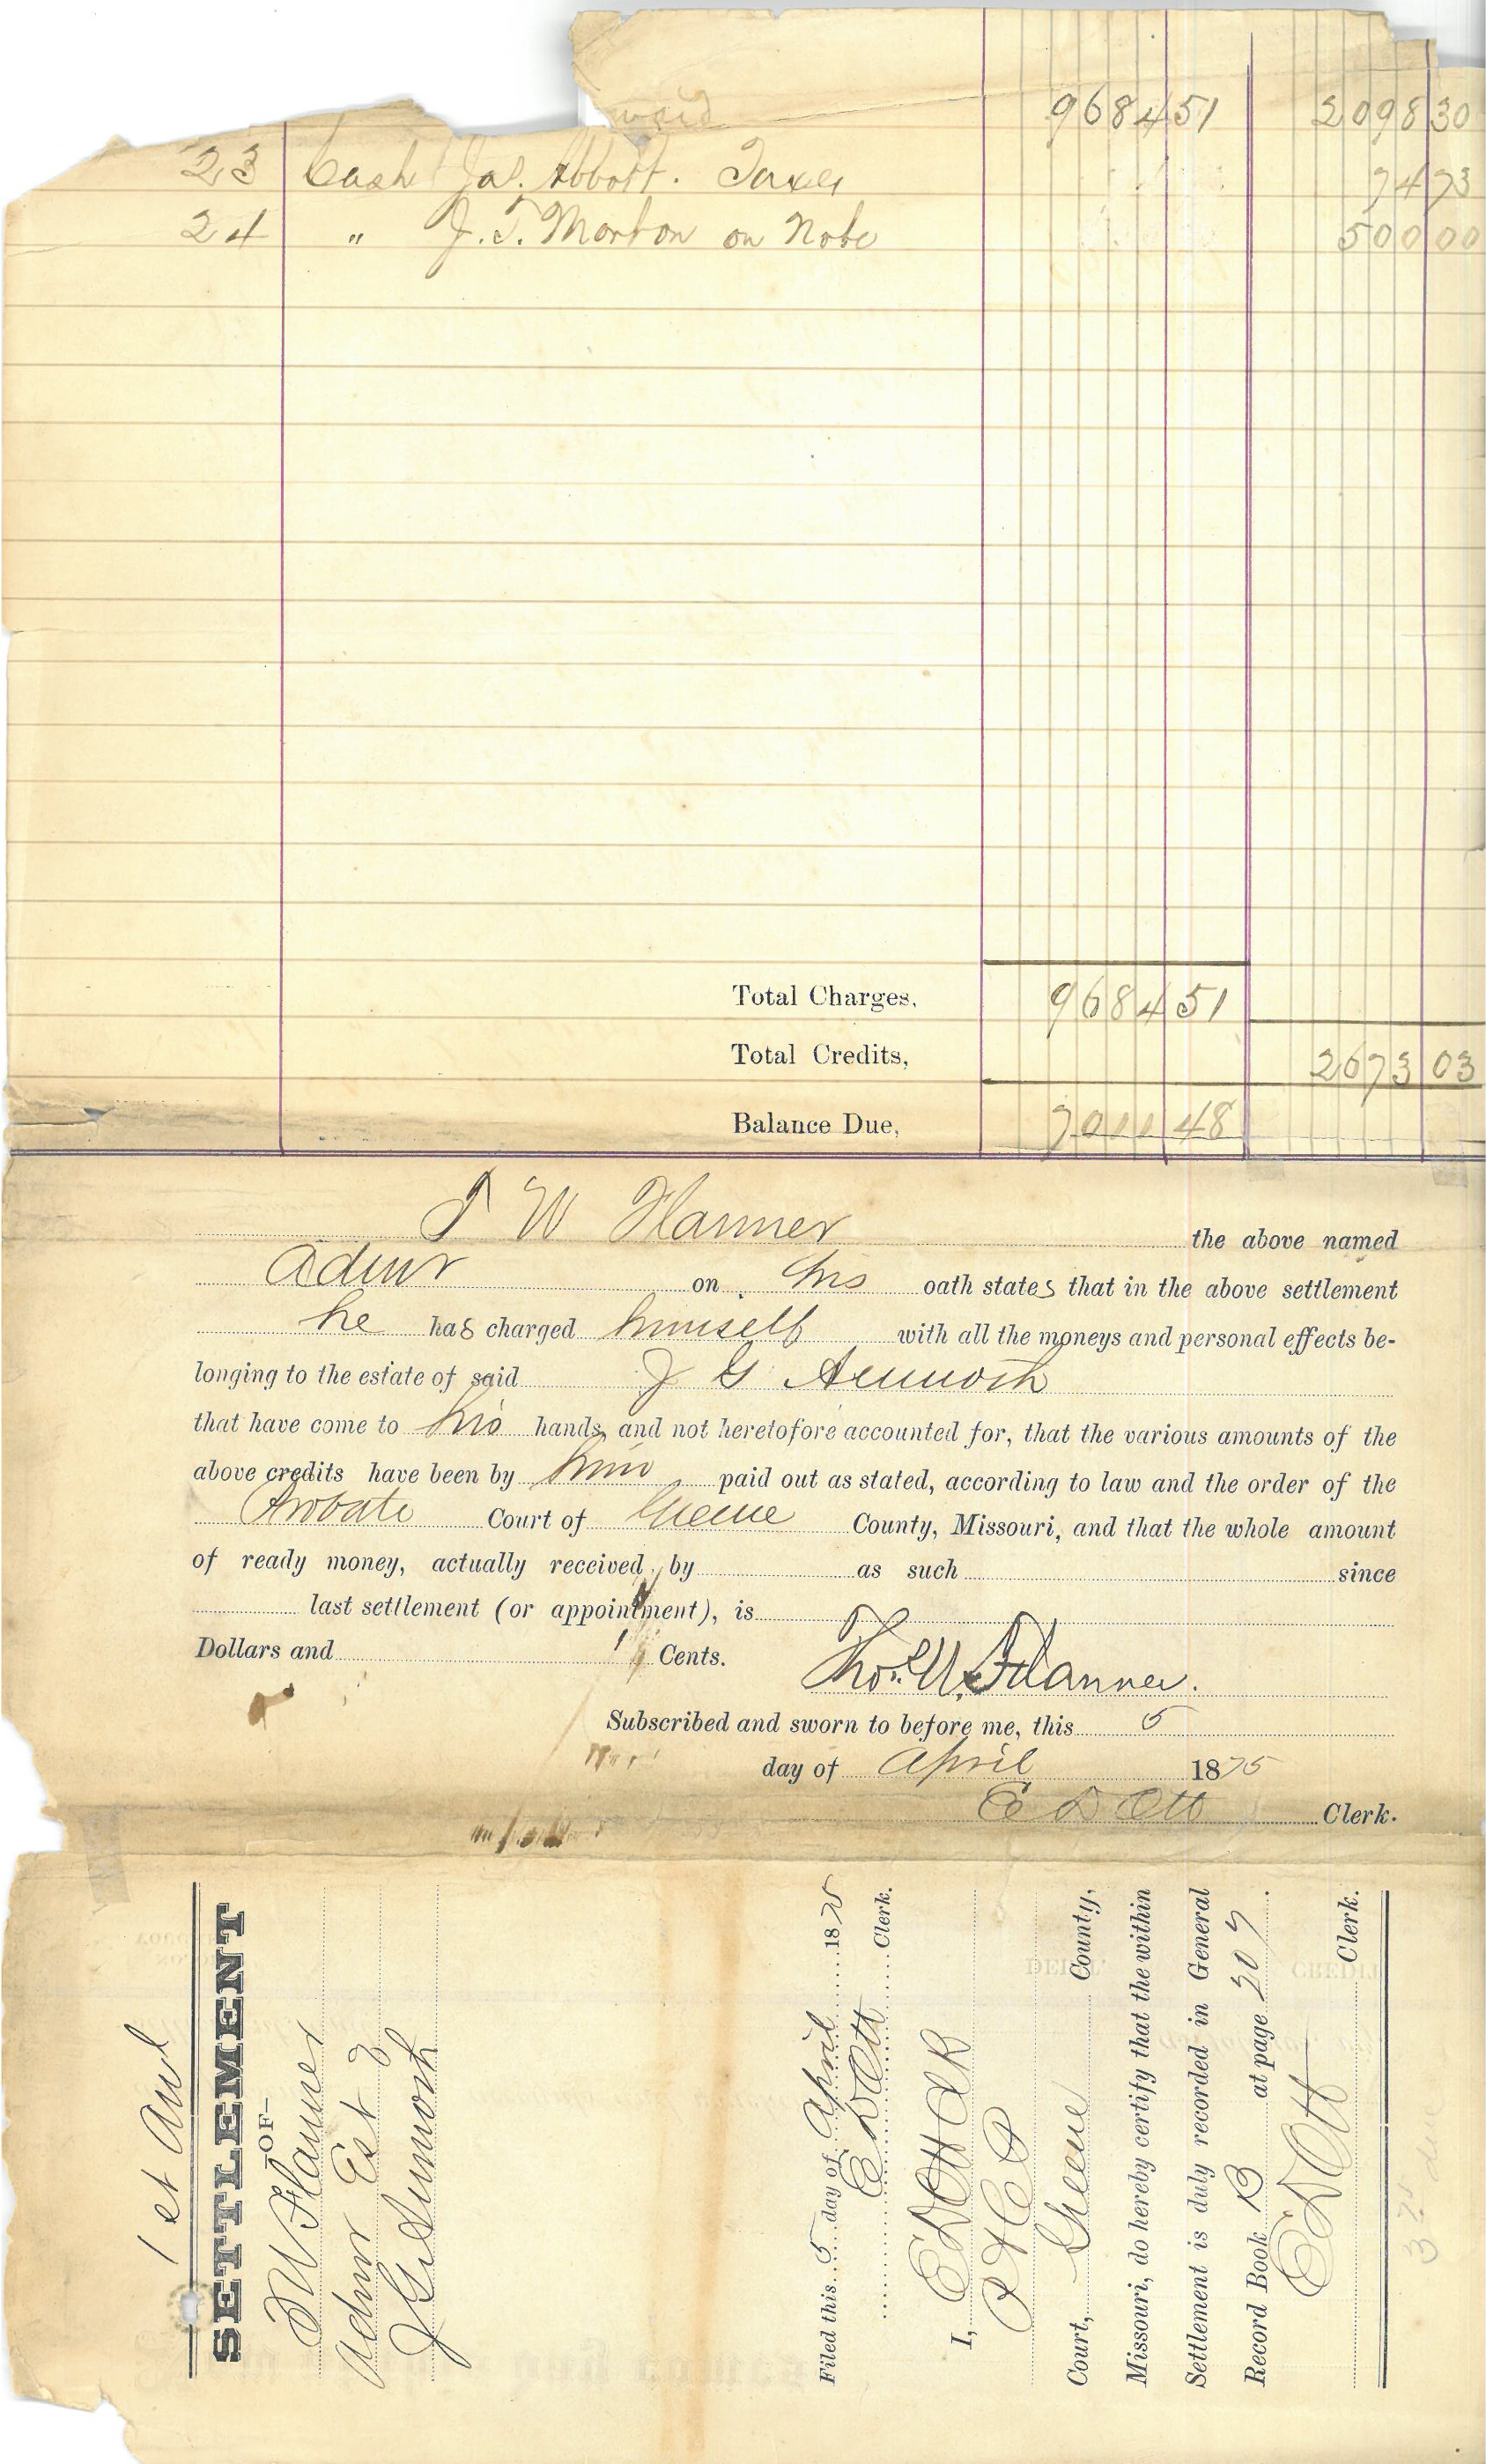 ward 9684 51 2098 30
23 Cash Jas. Abbott. Taxes 74 73
24 " J. T. Morton on Note 500 00
Total Charges, 9684 51
Total Credits, 2673 03
Balance Due, 7011 48
T W Flanner the above named
Admr on his oath states that in the above settlement
he has charged himself with all the moneys and personal effects be-
longing to the estate of said J G
that have come to his hands and not heretofore accounted for, that the various amounts of the
above credits have been by him paid out as stated, according to law and the order of the
Probate Court of Greene County, Missouri, and that the whole amount
of ready money, actually received, by as such since
last settlement (or appointment), is
Dollars and Cents.
Thos. W. Flanner.
Subscribed and sworn to before me, this 5
day of April 1875
E D Ott Clerk.
1st Anl
SETTLEMENT
-OF-
T W Flanner
Admr Est of
J G
Filed this 5 day of April 1875
E D Ott Clerk.
I, E D Ott
Court, Greene County,
Missouri, do hereby certify that the within
Settlement is duly recorded in General
Record Book B at page 207.
E D Ott
Clerk.